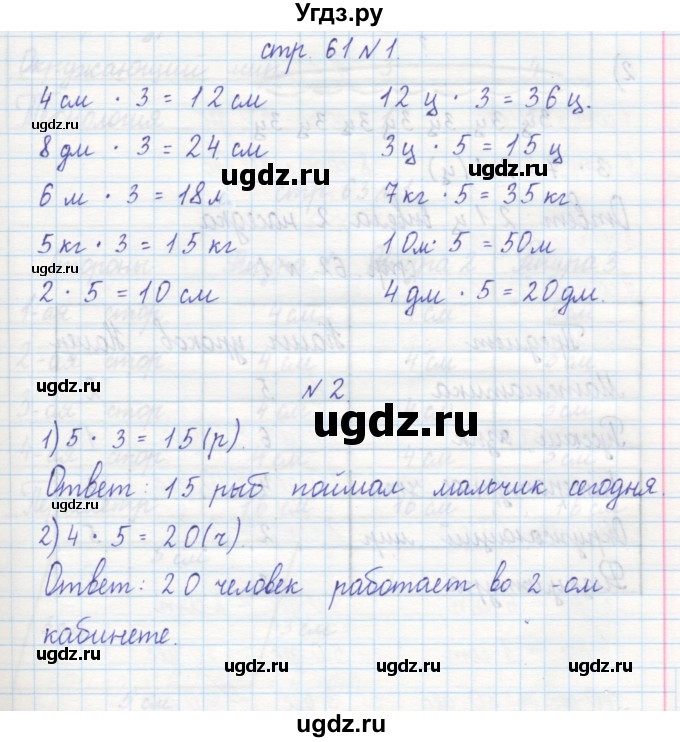 Угдз.ру
стр. 61 N 1.
4 см · 3 = 12 см
12 ц · 3 = 36 ц.
ugdz.ru
ugdz.ru
8 дм · 3 = 24 см
3ц · 5 = 15 ц
ugdz.ru
6 м · 3 = 18м
7кг · 5 = 35 кг
5 кг · 3 = 15 кг
10м · 5 = 50м
ugdz.ru
ugdz.ru
2 · 5 = 10 см
4 дм · 5 = 20дм.
ugdz.ru
ugdz.ru
N 2
ugdz.ru
1) 5 · 3 = 15 (р).
ugdz.ru
ugdz.ru
Ответ: 15 рыб поймал мальчик сегодня.
2) 4 · 5 = 20(ч).
ugdz.ru
ugdz.ru
Ответ: 20 человек работает во 2-ом
кабинете.
ugdz.ru
ugdz.ru
ugdz.ru
ugdz.ru
ugdz.ru